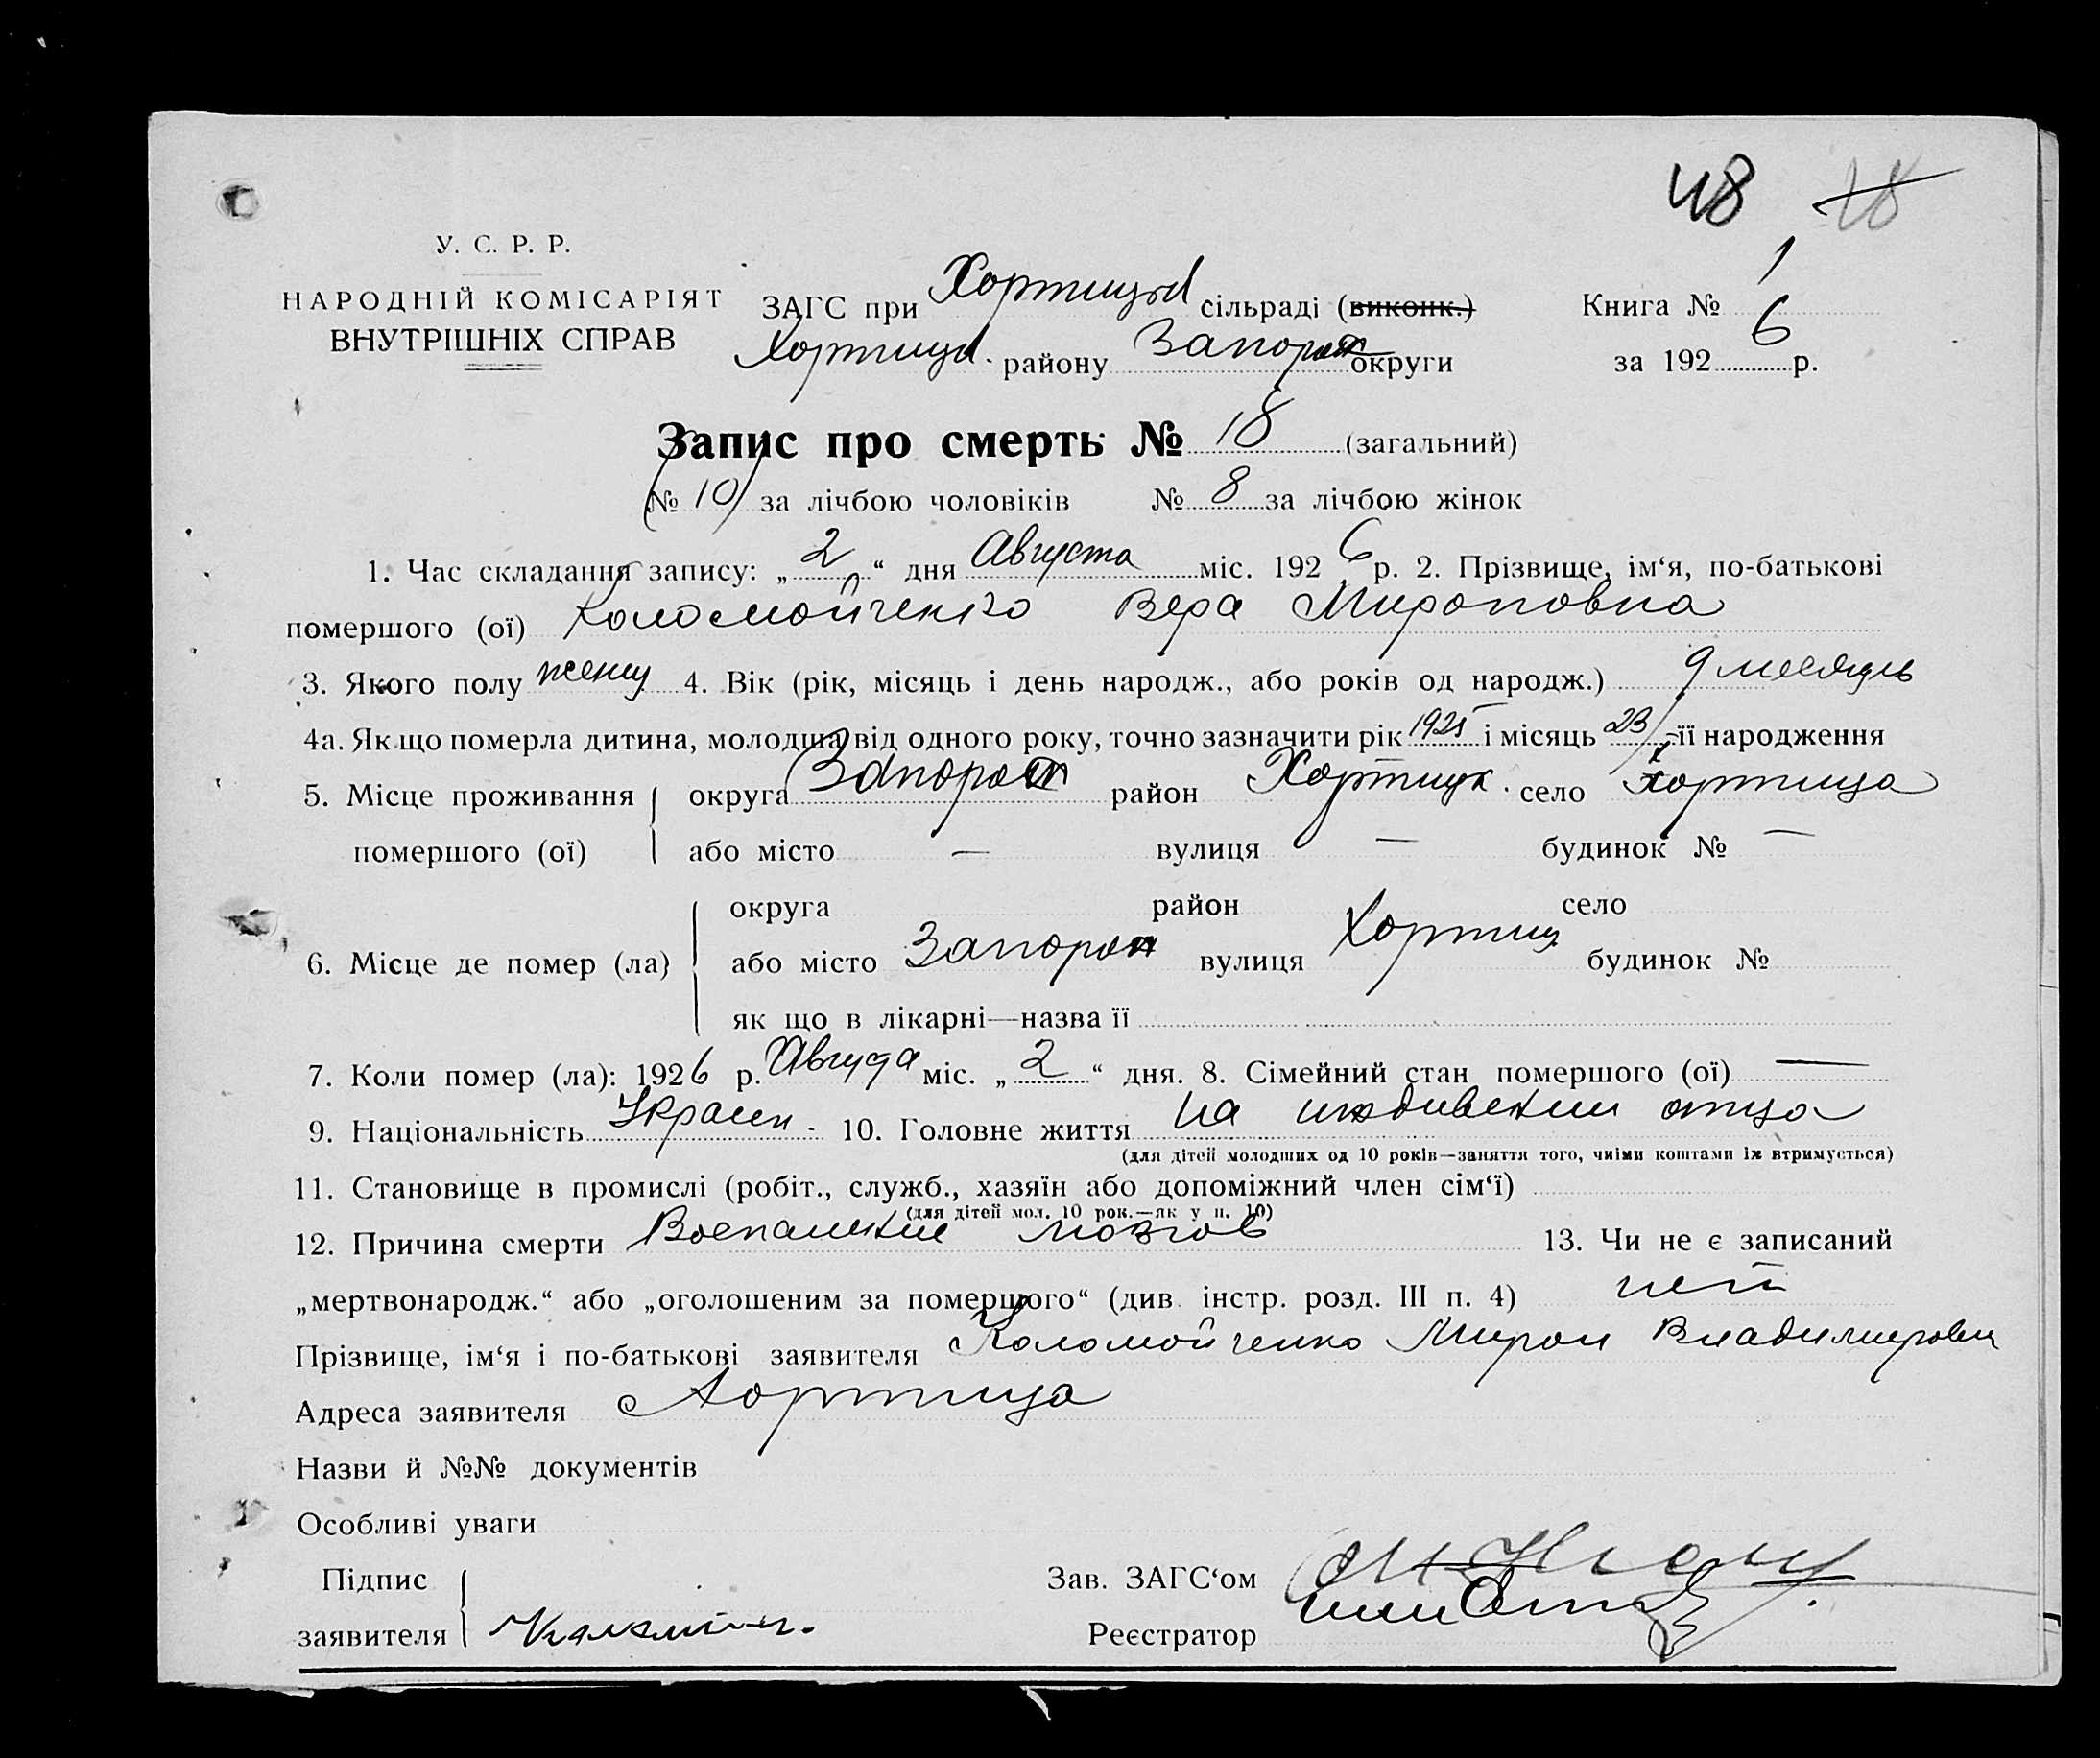 48 18
У. С. Р. Р.
НАРОДНІЙ КОМІСАРІЯТ
ВНУТРІШНІХ СПРАВ
ЗАГС при Хортицьй сільраді (виконк.) Книга № 1
Хортицьй. району Запорож округи за 192 6 р.
Запис про смерть № 18 (загальний)
(№ 10) за лічбою чоловіків № 8 за лічбою жінок
1. Час складання запису: „ 2 “ дня Августа міс. 192 6 р. 2. Прізвище, ім‘я, по-батькові
помершого (ої) Коломойченко Вера Мироновна
3. Якого полу женщ 4. Вік (рік, місяць і день народж., або років од народж.) 9 месяцев
4а. Як що померла дитина, молодша від одного року, точно зазначити рік 1925 і місяць 23/X її народження
5. Місце проживання округа Запорож район Хортицк. село Хортица
помершого (ої) або місто — вулиця — будинок № —
округа район село
6. Місце де помер (ла) або місто Запорож вулиця Хортиц будинок №
як що в лікарні—назва її
7. Коли помер (ла): 1926 р. Августа міс. „ 2 “ дня. 8. Сімейний стан помершого (ої) —
9. Національність Украин. 10. Головне життя на иждивении отца
(для дітей молодших од 10 років—заняття того, чиїми коштами їх втримується)
11. Становище в промислі (робіт., служб., хазяїн або допоміжний член сім‘ї)
(для дітей мол. 10 рок.—як у п. 10)
12. Причина смерти Воспаление мозгов 13. Чи не є записаний
„мертвонародж.“ або „оголошеним за померщого“ (див. інстр. розд. III п. 4) нет
Прізвище, ім‘я і по-батькові заявителя Коломойченко Мирон Владимирович
Адреса заявителя Хортица
Назви й №№ документів
Особливі уваги
Підпис Зав. ЗАГС‘ом
заявителя Реєстратор